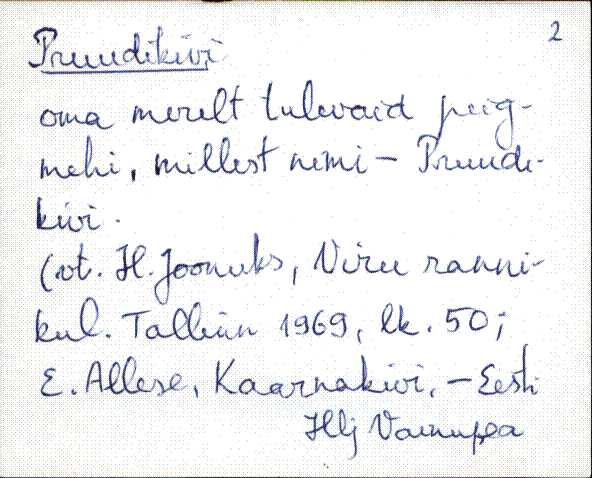 2
Pruudikivi
oma merelt tulevaid peig-
mehi, millest nimi – Pruudi-
kivi.
(vt. H. Joonuks, Viru ranni-
kul. Tallinn 1969, lk. 50;
E. Allese, Kaarnakivi, – Eesti
Hlj Vainupea